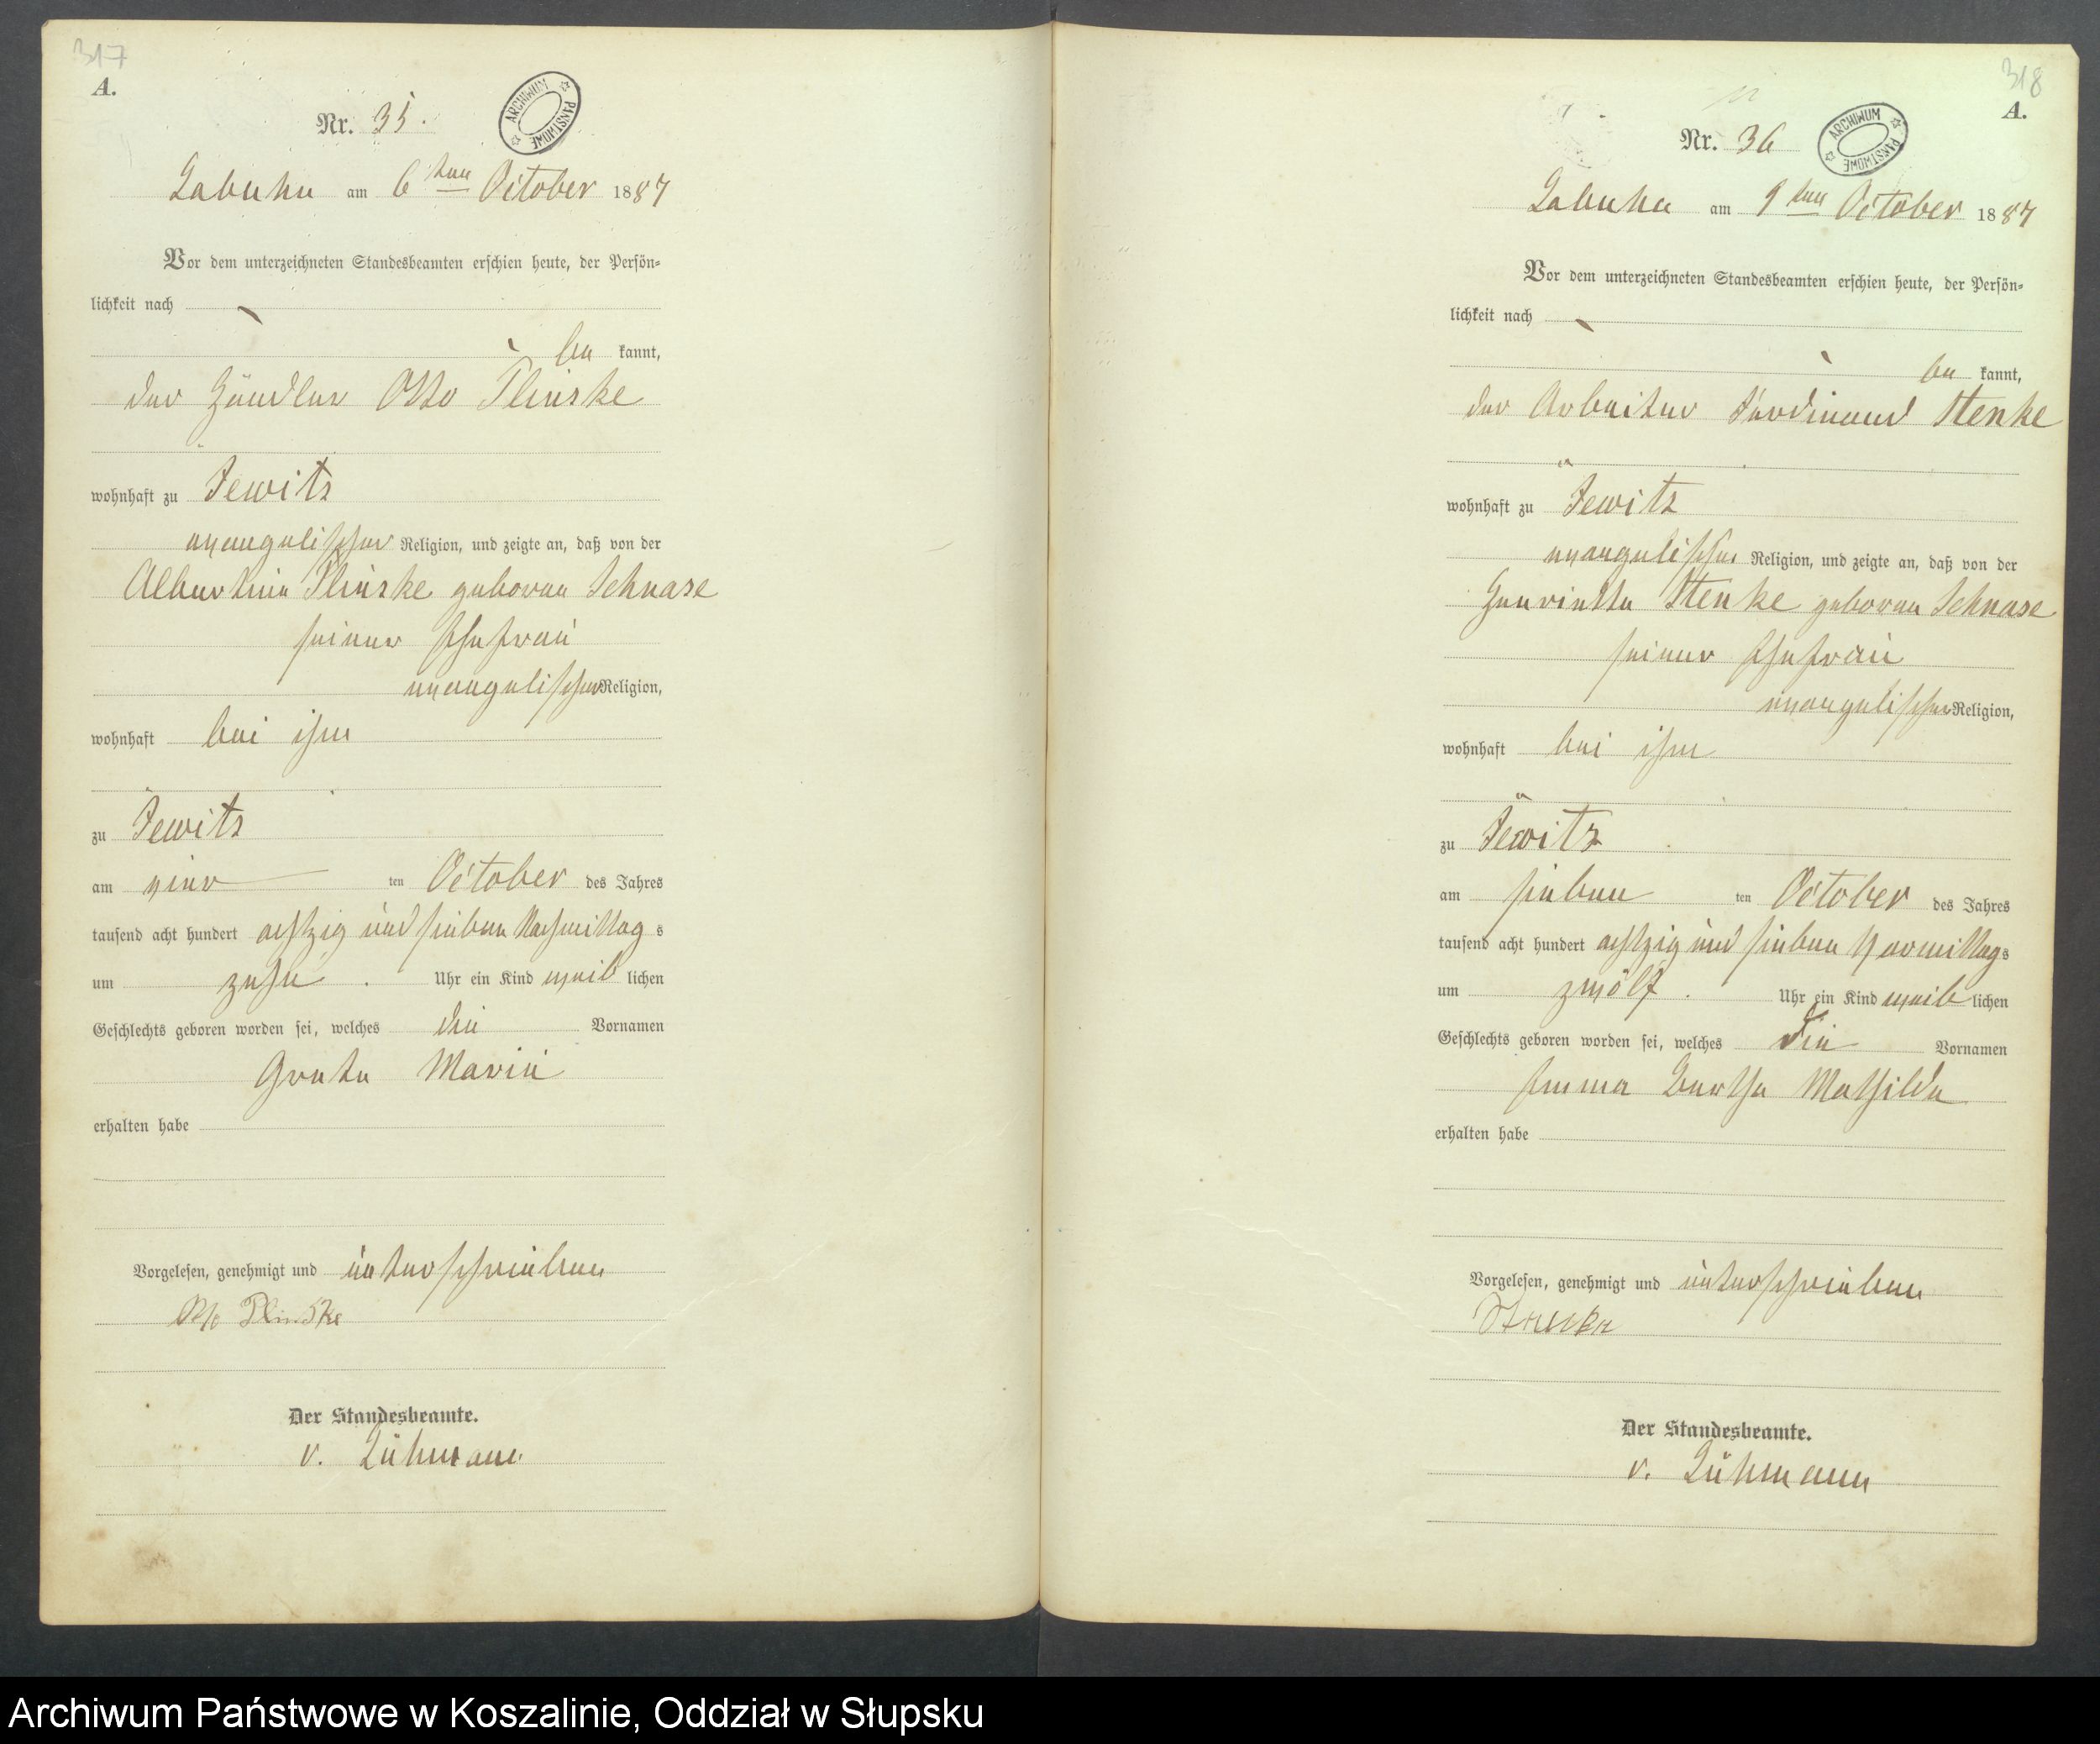 317
A.
Nr. 35.
ARCHIWUM PAŃSTWOWE
Labuhn am 6ten October 1887
Vor dem unterzeichneten Standesbeamten erschien heute, der Persön-
lichkeit nach
be kannt,
der Händler Otto Plinske
wohnhaft zu Jewitz
evangelischer Religion, und zeigte an, daß von der
Albertine Plinske geborene Schnase
seiner Ehefrau
evangelischer Religion,
wohnhaft bei ihm
zu Jewitz
am vier ten October des Jahres
tausend acht hundert achtzig und sieben Nachmittag s
um zehn Uhr ein Kind weib lichen
Geschlechts geboren worden sei, welches die Vornamen
Grete Marie
erhalten habe
Vorgelesen, genehmigt und unterschrieben
Otto Plinske
Der Standesbeamte.
v. Lühmann
318
A.
Nr. 36
ARCHIWUM PAŃSTWOWE
Labuhn am 9ten October 1887
Vor dem unterzeichneten Standesbeamten erschien heute, der Persön-
lichkeit nach
be kannt,
der Arbeiter Ferdinand Stenke
wohnhaft zu Jewitz
evangelischer Religion, und zeigte an, daß von der
Henriette Stenke geborene Schnase
seiner Ehefrau
evangelischer Religion,
wohnhaft bei ihm
zu Jewitz
am sieben ten October des Jahres
tausend acht hundert achtzig und sieben Vormittags
um zwölf Uhr ein Kind weib lichen
Geschlechts geboren worden sei, welches die Vornamen
Emma Bertha Mathilde
erhalten habe
Vorgelesen, genehmigt und unterschrieben
Der Standesbeamte.
v. Lühmann
Archiwum Państwowe w Koszalinie, Oddział w Słupsku